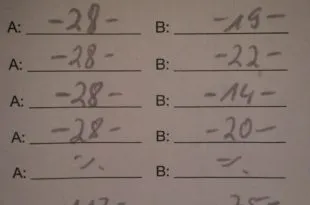 A: -28- B: -19-
A: -28- B: -22-
A: -28- B: -14-
A: -28- B: -20-
A: ·/. B: ·/.